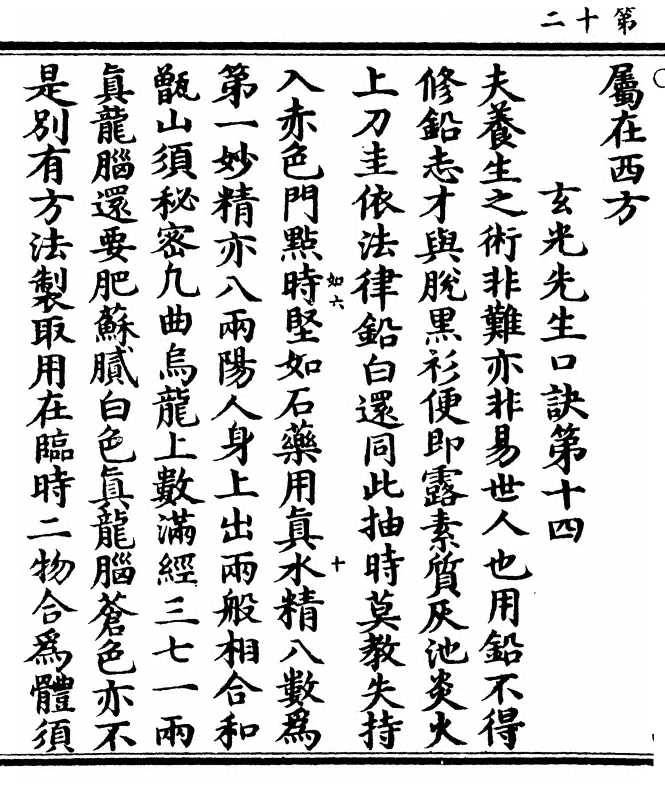 第十二
屬在西方
玄光先生口訣第十四
夫養生之術非難亦非易世人也用鉛不得
修鉛志才與脫黑衫便即露素質灰池炎火
上刀圭依法律鉛白還同此抽時莫教失持
入赤色門點時堅如石藥用眞水精八數爲
如六
十
第一妙精亦八兩陽人身上出兩般相合和
甑山須秘密九曲烏龍上數滿經三七一兩
眞龍腦還要肥蘇膩白色眞龍腦蒼色亦不
是別有方法製取用在臨時二物合爲體須